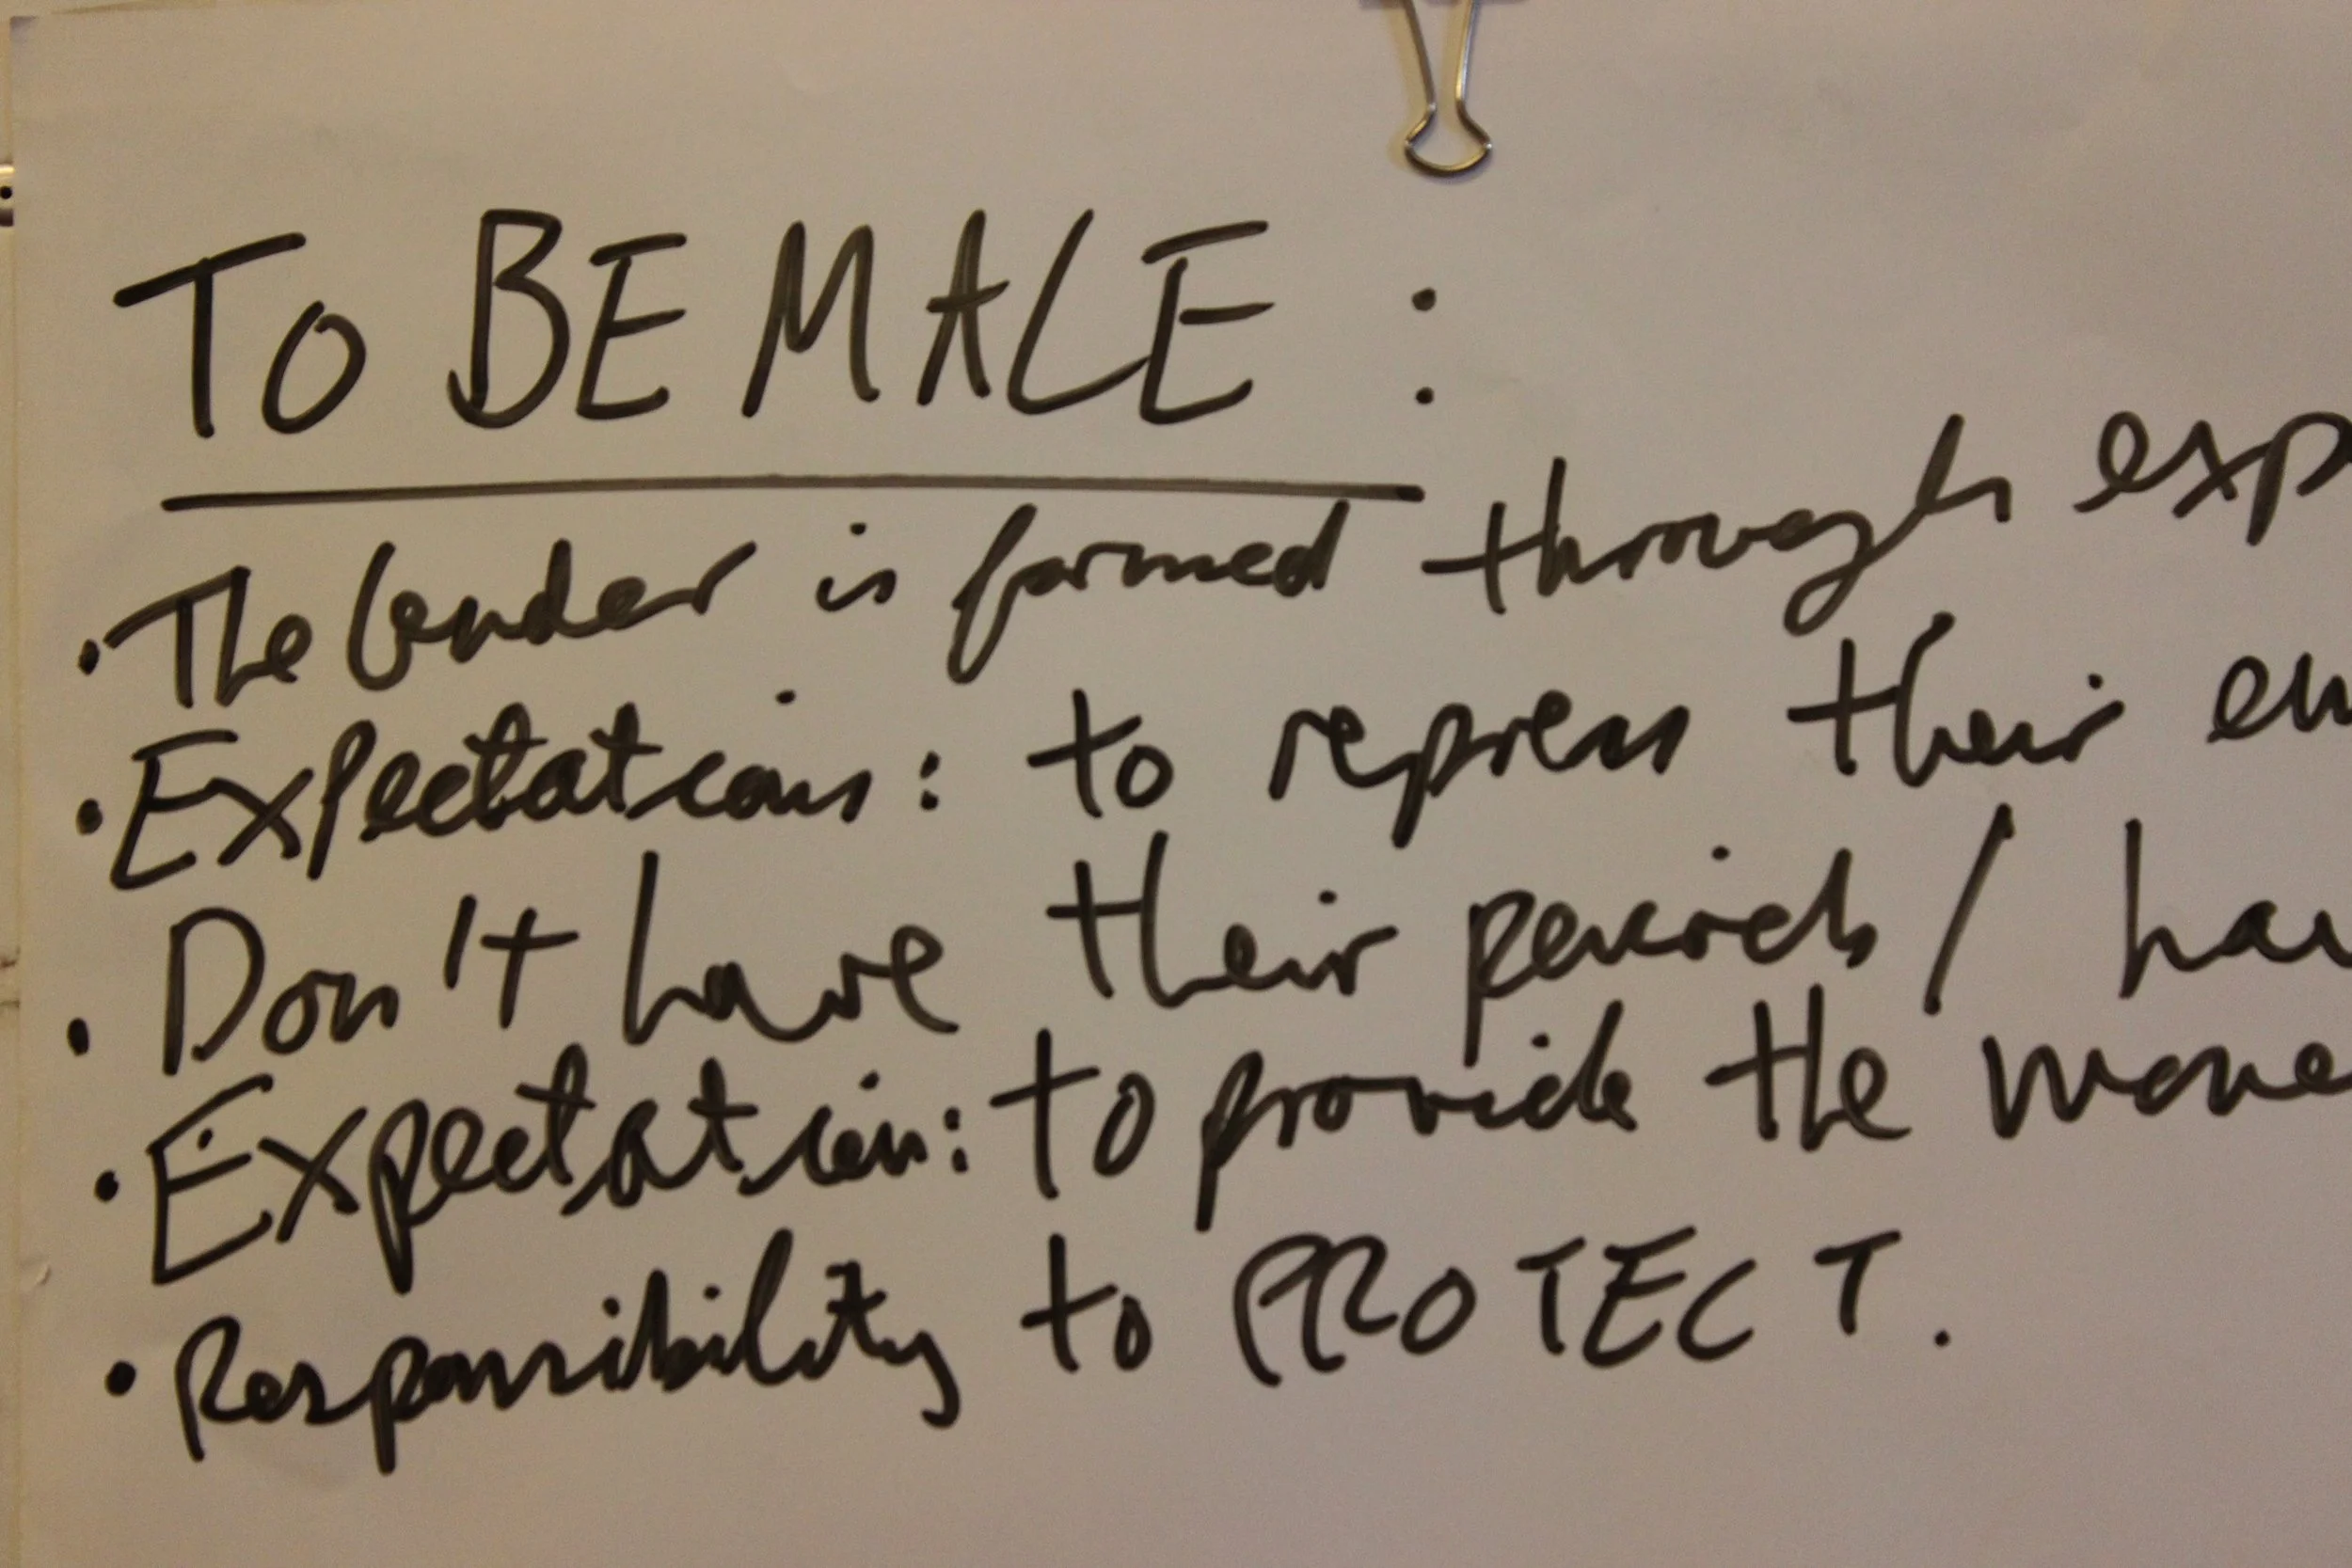 TO BE MALE :
• The Gender is formed through exp
• Expectations: to repress their em
• Don't have their periods / hav
• Expectation: to provide the mone
• Responsibility to PROTECT.